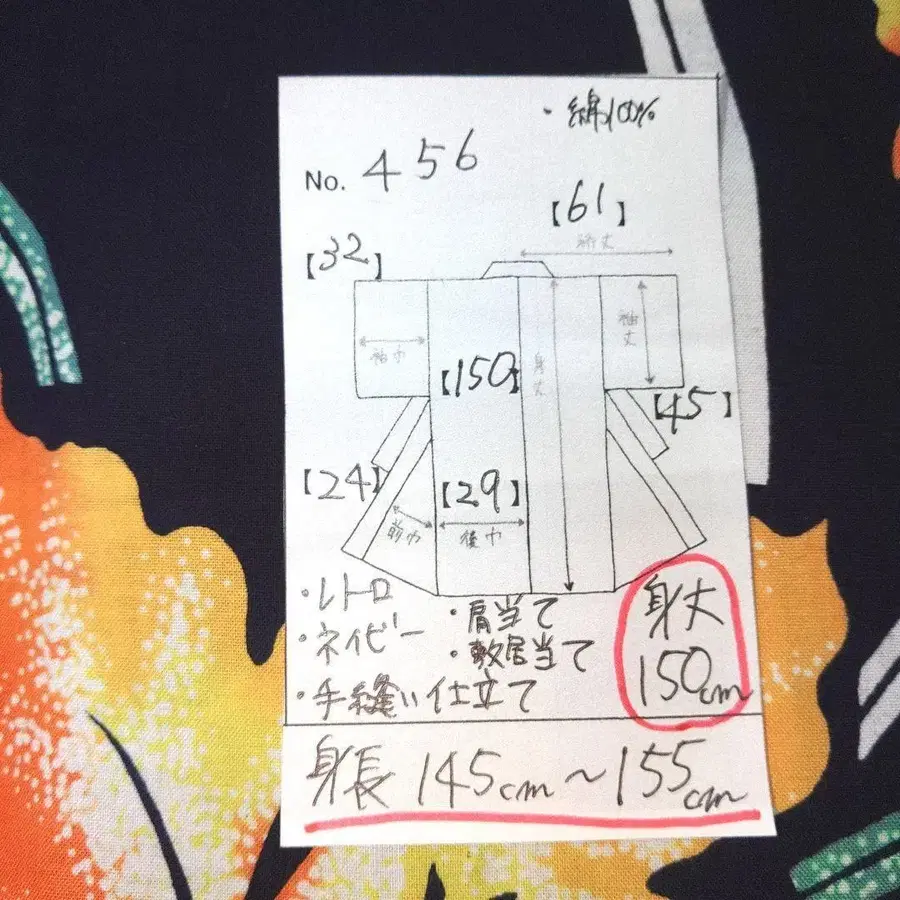 ・綿100%
No. 456
【61】
裄丈
【32】
袖巾
袖丈
【150】
身丈
【45】
【24】
【29】
前巾
後巾
・レトロ
・ネイビー
・肩当て
・敷居当て
・手縫い仕立て
身丈
150cm
身長 145cm~155cm